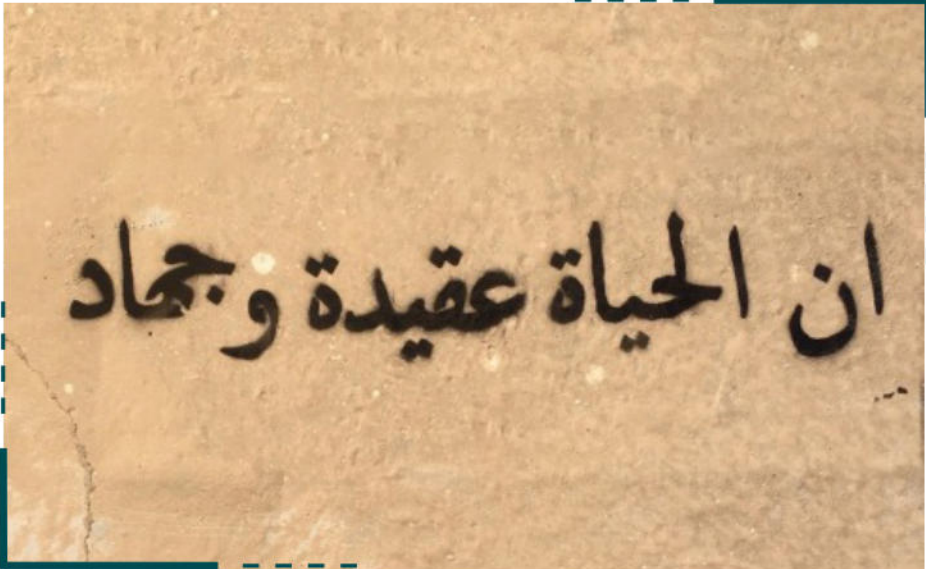 ان الحياة عقيدة وجهاد